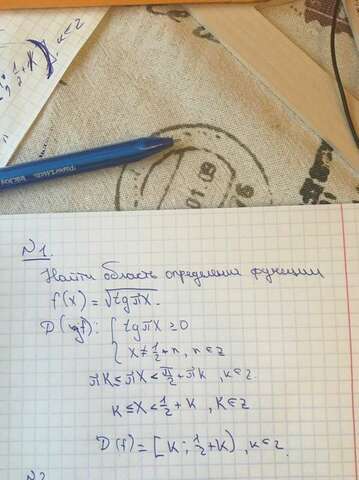 ; 1/2 + K), K ∈ Z
PaperMate InkJoy
01.09
N1.
Найти область определения функции
f(x) = √tgπx.
D(f): { tgπx ≥ 0
x ≠ 1/2 + n, n ∈ Z
πK ≤ πx < π/2 + πK, K ∈ Z
K ≤ x < 1/2 + K, K ∈ Z
D(f) = [K; 1/2 + K), K ∈ Z.
N2